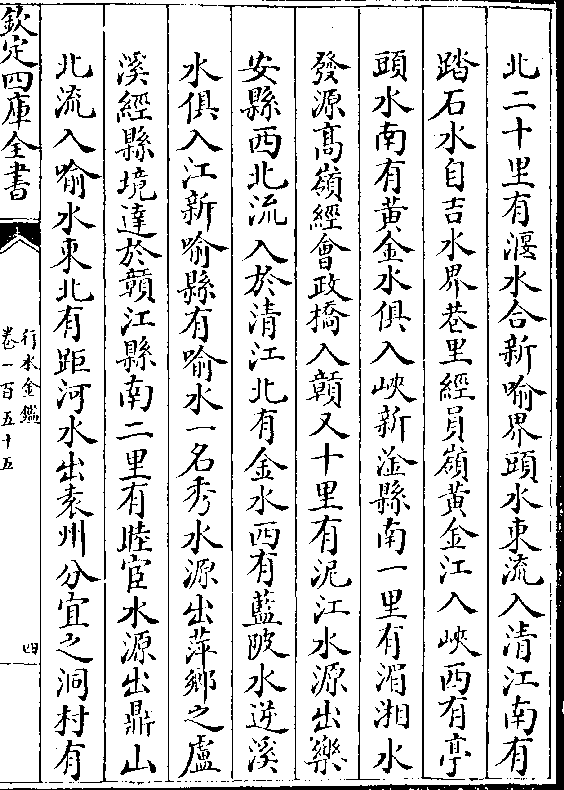 北二十里有㵎水合新喻界頭水東流入清江南有
踏石水自吉水界巷里經員嶺黄金江入峽西有亭
頭水南有黄金水俱入峽新淦縣南一里有湄湘水
發源髙嶺經㑹政橋入贑又十里有泥江水源出樂
安縣西北流入於清江北有金水西有藍陂水逆溪
水俱入江新喻縣有喻水一名秀水源出萍鄉之盧
溪經縣境達於贑江縣南二里有睦宦水源出鼎山
北流入喻水東北有距河水出袁州分宜之洞村有
欽定四庫全書
行水金鑑
卷一百五十五
四